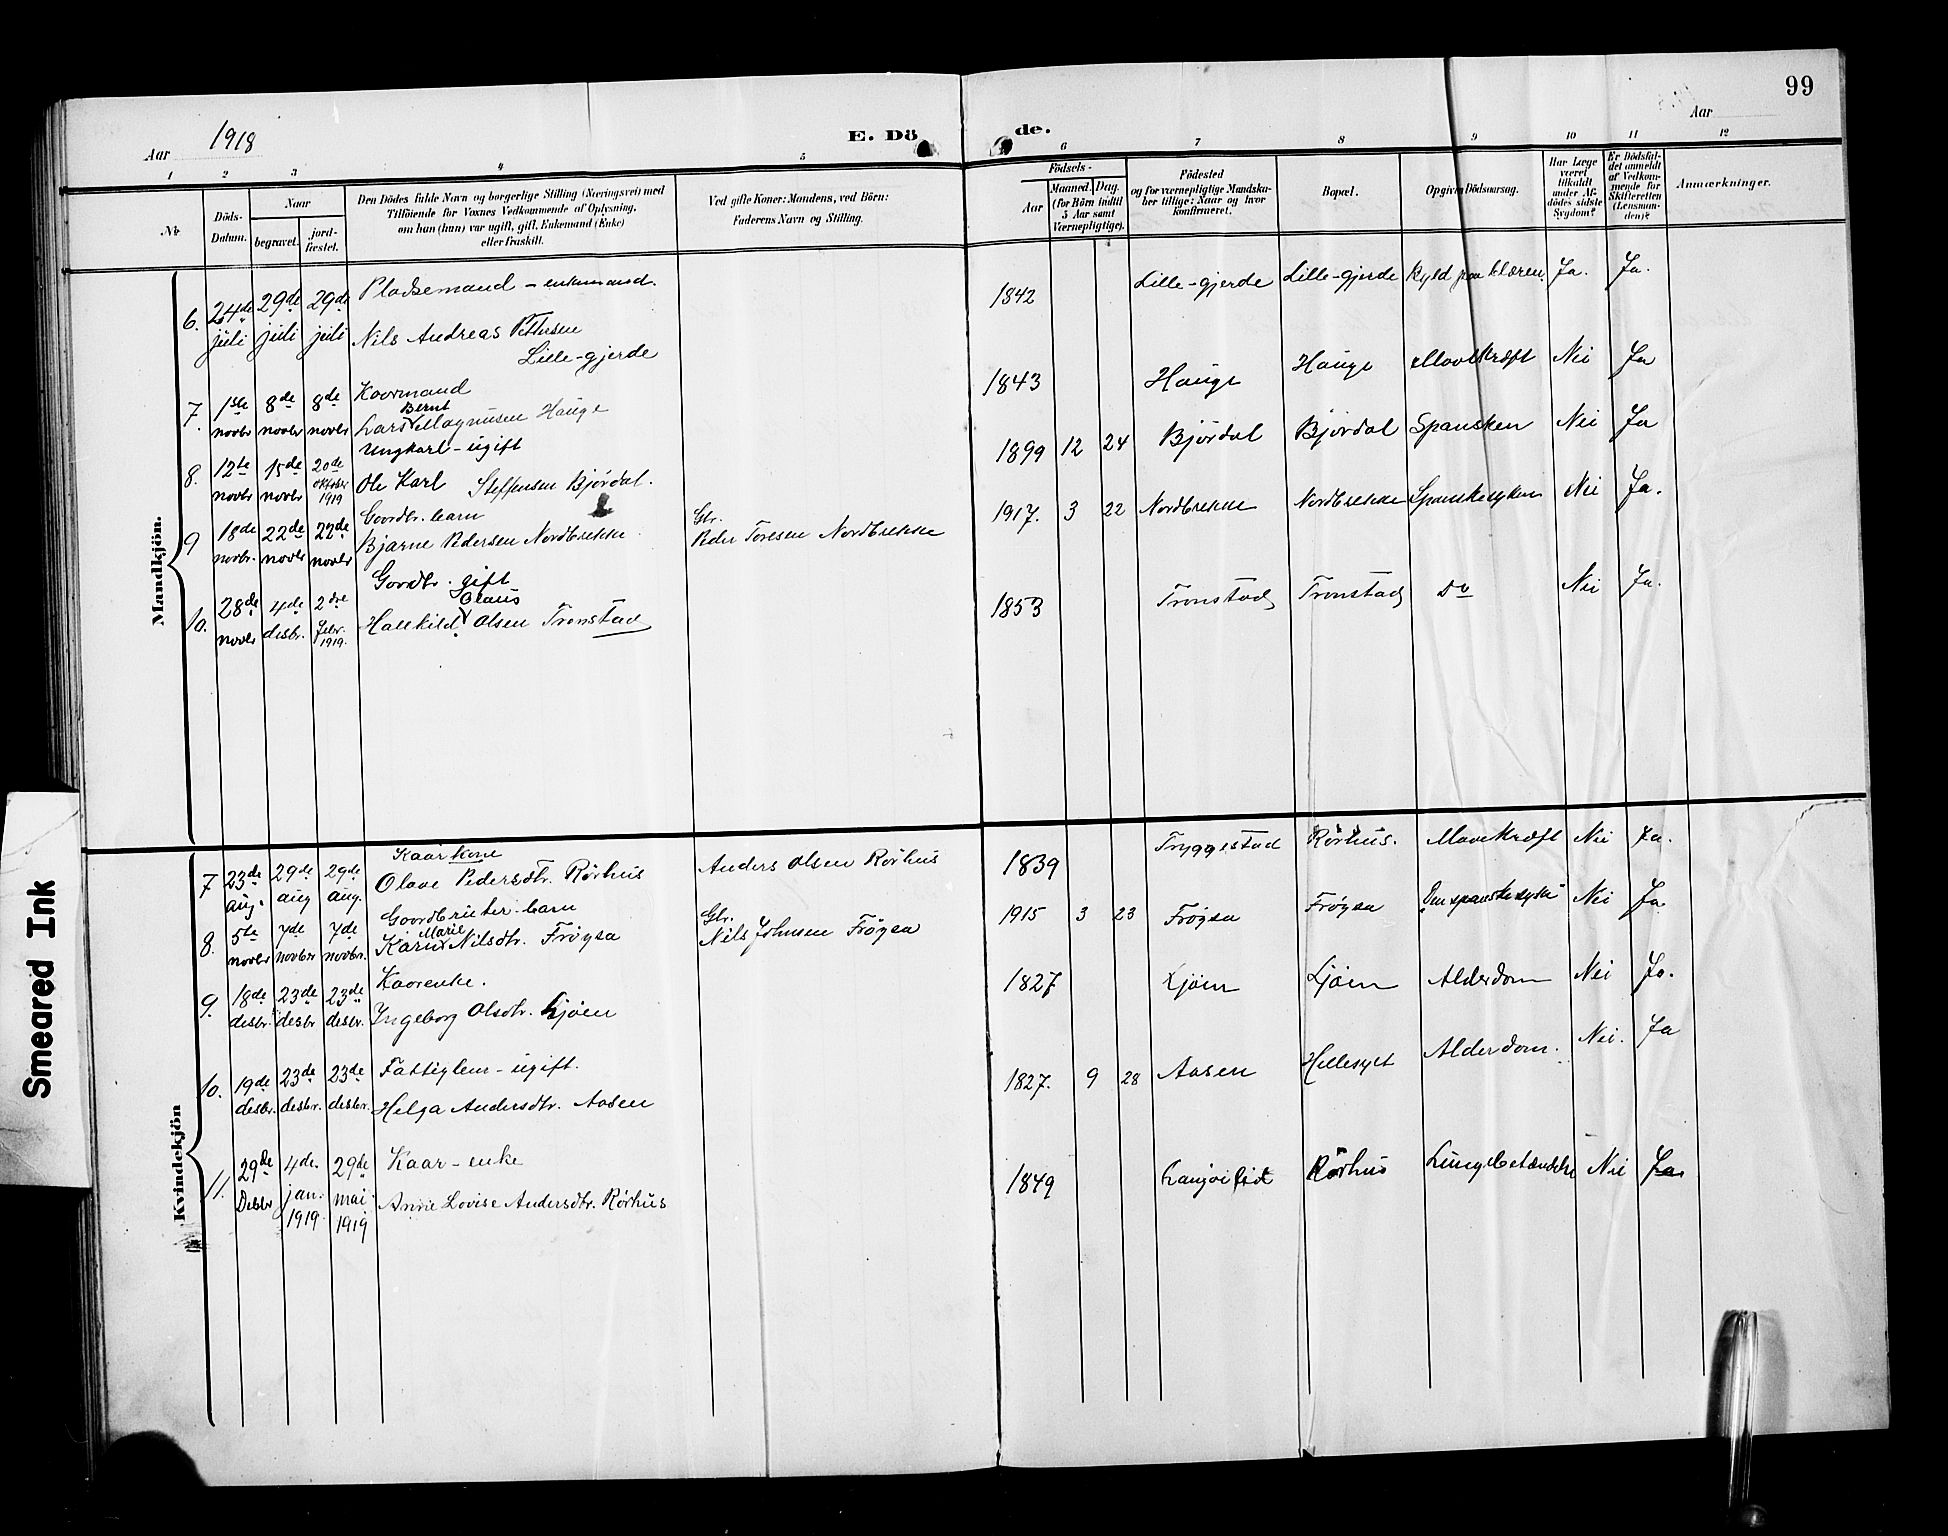 99
Aar 1918
E. Döde.
Aar
1 2 3 4 5 6 7 8 9 10 11 12
Nr.
Döds-Datum.
Naar
begravet.
jordfæstet.
Den Dödes fulde Navn og borgerlige Stilling (Næringsvei) med
Tilföiende for Voxnes Vedkommende af Oplysning,
om han (hun) var ugift, gift, Enkemand (Enke)
eller fraskilt.
Ved gifte Koner: Mandens, ved Börn:
Faderens Navn og Stilling.
Födsels-
Aar
Maaned. Dag.
(for Börn indtil
5 Aar samt
Værnepligtige).
Födested
og for værnepligtige Mandskaber tillige: Naar og hvor
konfirmeret.
Bopæl.
Opgiven Dödsaarsag.
Har Læge
været
tilkaldt
under Afdödes sidste
Sygdom?
Er Dödsfaldet anmeldt
af Vedkommende for
Skifteretten
(Lensmanden)?
Anmærkninger.
Mandkjön.
6. 24de juli 29de juli 29de juli Pladsemand – enkemand.
Nils Andreas Pettersen
Lille-gjerde
1842 Lille-gjerde Lille-gjerde Byld paa klæren Ja. Ja.
7. 1ste novbr 8de novbr 8de novbr Kaarmand
Bernt
Lars Magnusen Hauge
1843 Hauge Hauge Mavekræft Nei Ja
8. 12te novbr 15de novbr 20de oktober 1919 Ungkarl – ugift
Ole Karl Steffensen Bjørdal.
1899 12 24 Bjørdal Bjørdal Spansken Nei Ja
9 18de novbr. 22de novbr 22de novbr Goordbr. barn
Bjarne Pedersen Nordbrekke
Gbr.
Peder Toresen Nordbrekke
1917. 3 22 Nordbrekke Nordbrekke Spanskesyken Nei Ja.
10. 28de novbr 4de desbr. 2dre febr. 1919. Goordbr. gift
Olaus
Hallkild Olsen Tronstad
1853 Tronstad Tronstad Do Nei Ja.
Kvindekjön
7 23de aug. 29de aug 29de aug. Kaarkone
Olave Pedersdtr. Rørhus
Anders Olsen Rørhus
1839 Tryggestad Rørhus. Mavekræft Nei Ja.
8. 5te novbr 7de novbr 7de novbr. Goordbruker-barn
Marie
Karen Nilsdtr. Frøysa
Gbr.
Nils Johnsen Frøysa
1915 3 23 Frøysa Frøysa Den spanske syke Nei Ja
9. 18de desbr. 23de desbr 23de desbr. Kaarenke.
Ingeborg Olsdtr. Ljøen
1827 Ljøen Ljøen Alderdom Nei Ja.
10. 19de desbr. 23de desbr. 23de desbr. Fattiglem – ugift.
Helga Andersdtr. Aasen
1827. 9 28 Aasen Hellesylt Alderdom. Nei. Ja
11. 29de Desbr 4de. jan. 1919 29de mai 1919 Kaar – enke
Anne Lovise Andersdtr. Rørhus
1849 Rørhus Lungebetændelse Nei Ja
Smeared Ink